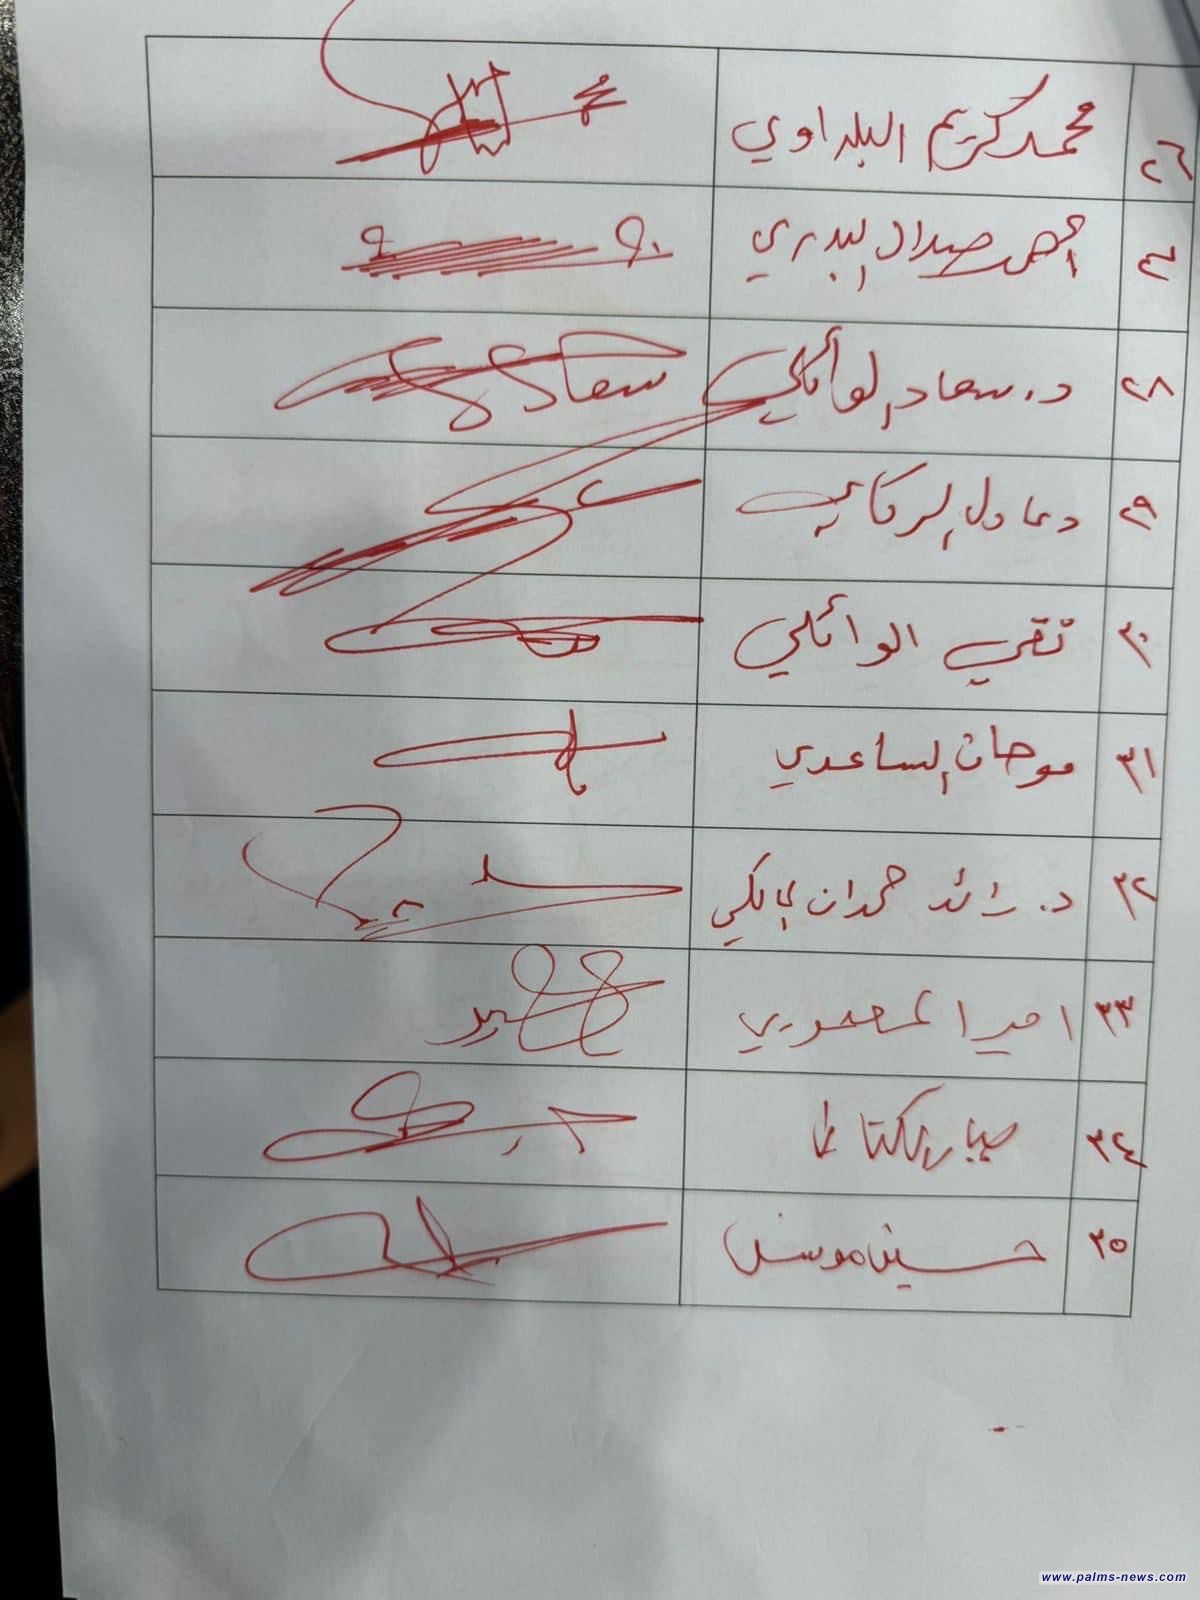 ٢٦ محمد كريم البلداوي
٢٧ البدري
٢٨ د. سعاد الوائلي سعاد
٢٩ د عادل الركابي
٣٠ تقي الوائلي
٣١ موحان الساعدي
٣٢ د. رائد حمدان المالكي
٣٣ امير المعموري
٣٤
٣٥ حسين مونس
www.palms-news.com